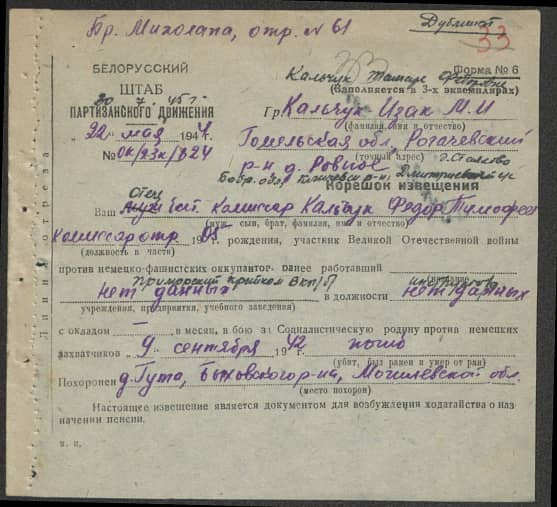 Дубликат
Бр. Михолапа, отр. № 61
33
Форма № 6
Кальчук Тамаре
БЕЛОРУССКИЙ
ШТАБ
ПАРТИЗАНСКОГО ДВИЖЕНИЯ
20 7 45 г.
(Заполняется в 3-х экземплярах)
Гр. Кальчук Изак М.И
(фамилия, имя и отчество)
„22 мая 1944
Гомельская обл, Рогачевский
(точный адрес)
№ 0к/93к/624
р-н д. Ровное
Бобр. обл.
КОРЕШОК ИЗВЕЩЕНИЯ
Отец
Ваш муж бат. комиссар Кальчук Федор Тимофее
(муж, сын, брат, фамилия, имя и отчество)
Комиссар отр 19 рождения, участник Великой Отечественной войны
(должность в части) (звание)
против немецко-фашистских оккупантов, ранее работавший
Приморский крайком ВКП/б/ инструктор
нет данных в должности нет данных
учреждения, предприятия, учебного заведения)
с окладом — в месяц, в бою за Социалистическую родину против немецких
захватчиков „9 сентября 1942 погиб
(убит, был ранен и умер от ран)
Похоронен д. Гута, Быховского р-на, Могилевской обл.
(место похорон)
Настоящее извещение является документом для возбуждения ходатайства о наз-
начении пенсии.
м. п.
Линия отреза